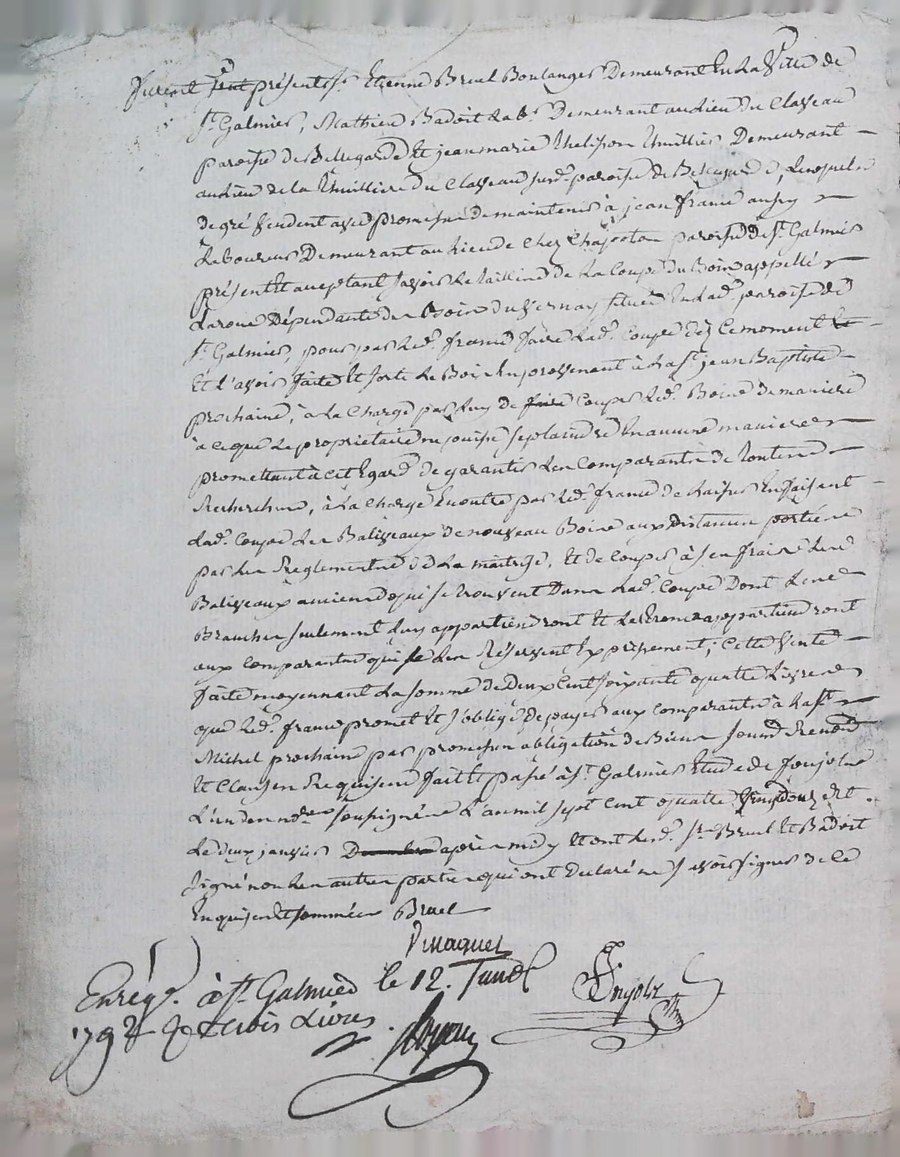 Furent présents sr Etienne Breul Boulanger Demeurant En La Ville de
st Galmier, Mathieu Badoit Labr Demeurant au Lieu du Clapeau
paroisse de Bellegarde Et jean marie Thuillier Demeurant
au Lieu de la Thuilliere du Clapeau susde paroisse de Bellegarde, Lesquels
de gré Vendent avec promesse de maintenir à jean france
Laboureur Demeurant au Lieu de Chez paroisse de st Galmier
présent Et acceptant savoir Le taillis de La Coupe du Bois appellé
Laroue Dépendante du Bois du Vernay située En Lade paroisse de
st Galmier, pour par Led. france faire Lade Coupe dès Ce moment
Et L'avoir faite Et sorti Le Bois En provenant à La st jean Baptiste
prochaine, à La Charge par Luy de Couper Led. Bois de maniere
à ce que Le proprietaire ne puisse se plaindre En aucune maniere
promettant à cet Egard de garantir Les Comparants de toutes
Recherches, à La Charge En outre par Led. france de Laisser En faisant
Lade Coupe Des Baliveaux de nouveau Bois aux Distances portées
par Les Reglements de La maitrise, Et de Couper à ses frais Les
Baliveaux anciens qui se trouvent Dans Lade Coupe Dont Les
Branches seulement Luy appartiendront Et Les troncs appartiendront
aux Comparants qui se Les Réservent Expressement; Cette Vente
faite moyennant La somme de Deux Cent soixante quatre Livres
que Led. france promet Et s'oblige de payer aux Comparants à La st
Michel prochain par promesse obligation de Biens soumis Renon
Et Clauses Requises fait Et passé à st Galmier Etude de
L'un des nores soussignés L'an mil sept cent quatre Vingt douze Et
Le deux janvier après midy Et ont Led. sr Breul Et Badoit
signé non Les autres parties qui ont Declaré ne savoir signer de ce
Enquis Et sommés Breul
Enrég. à st Galmier le 12. Janv
1792 trois Livres